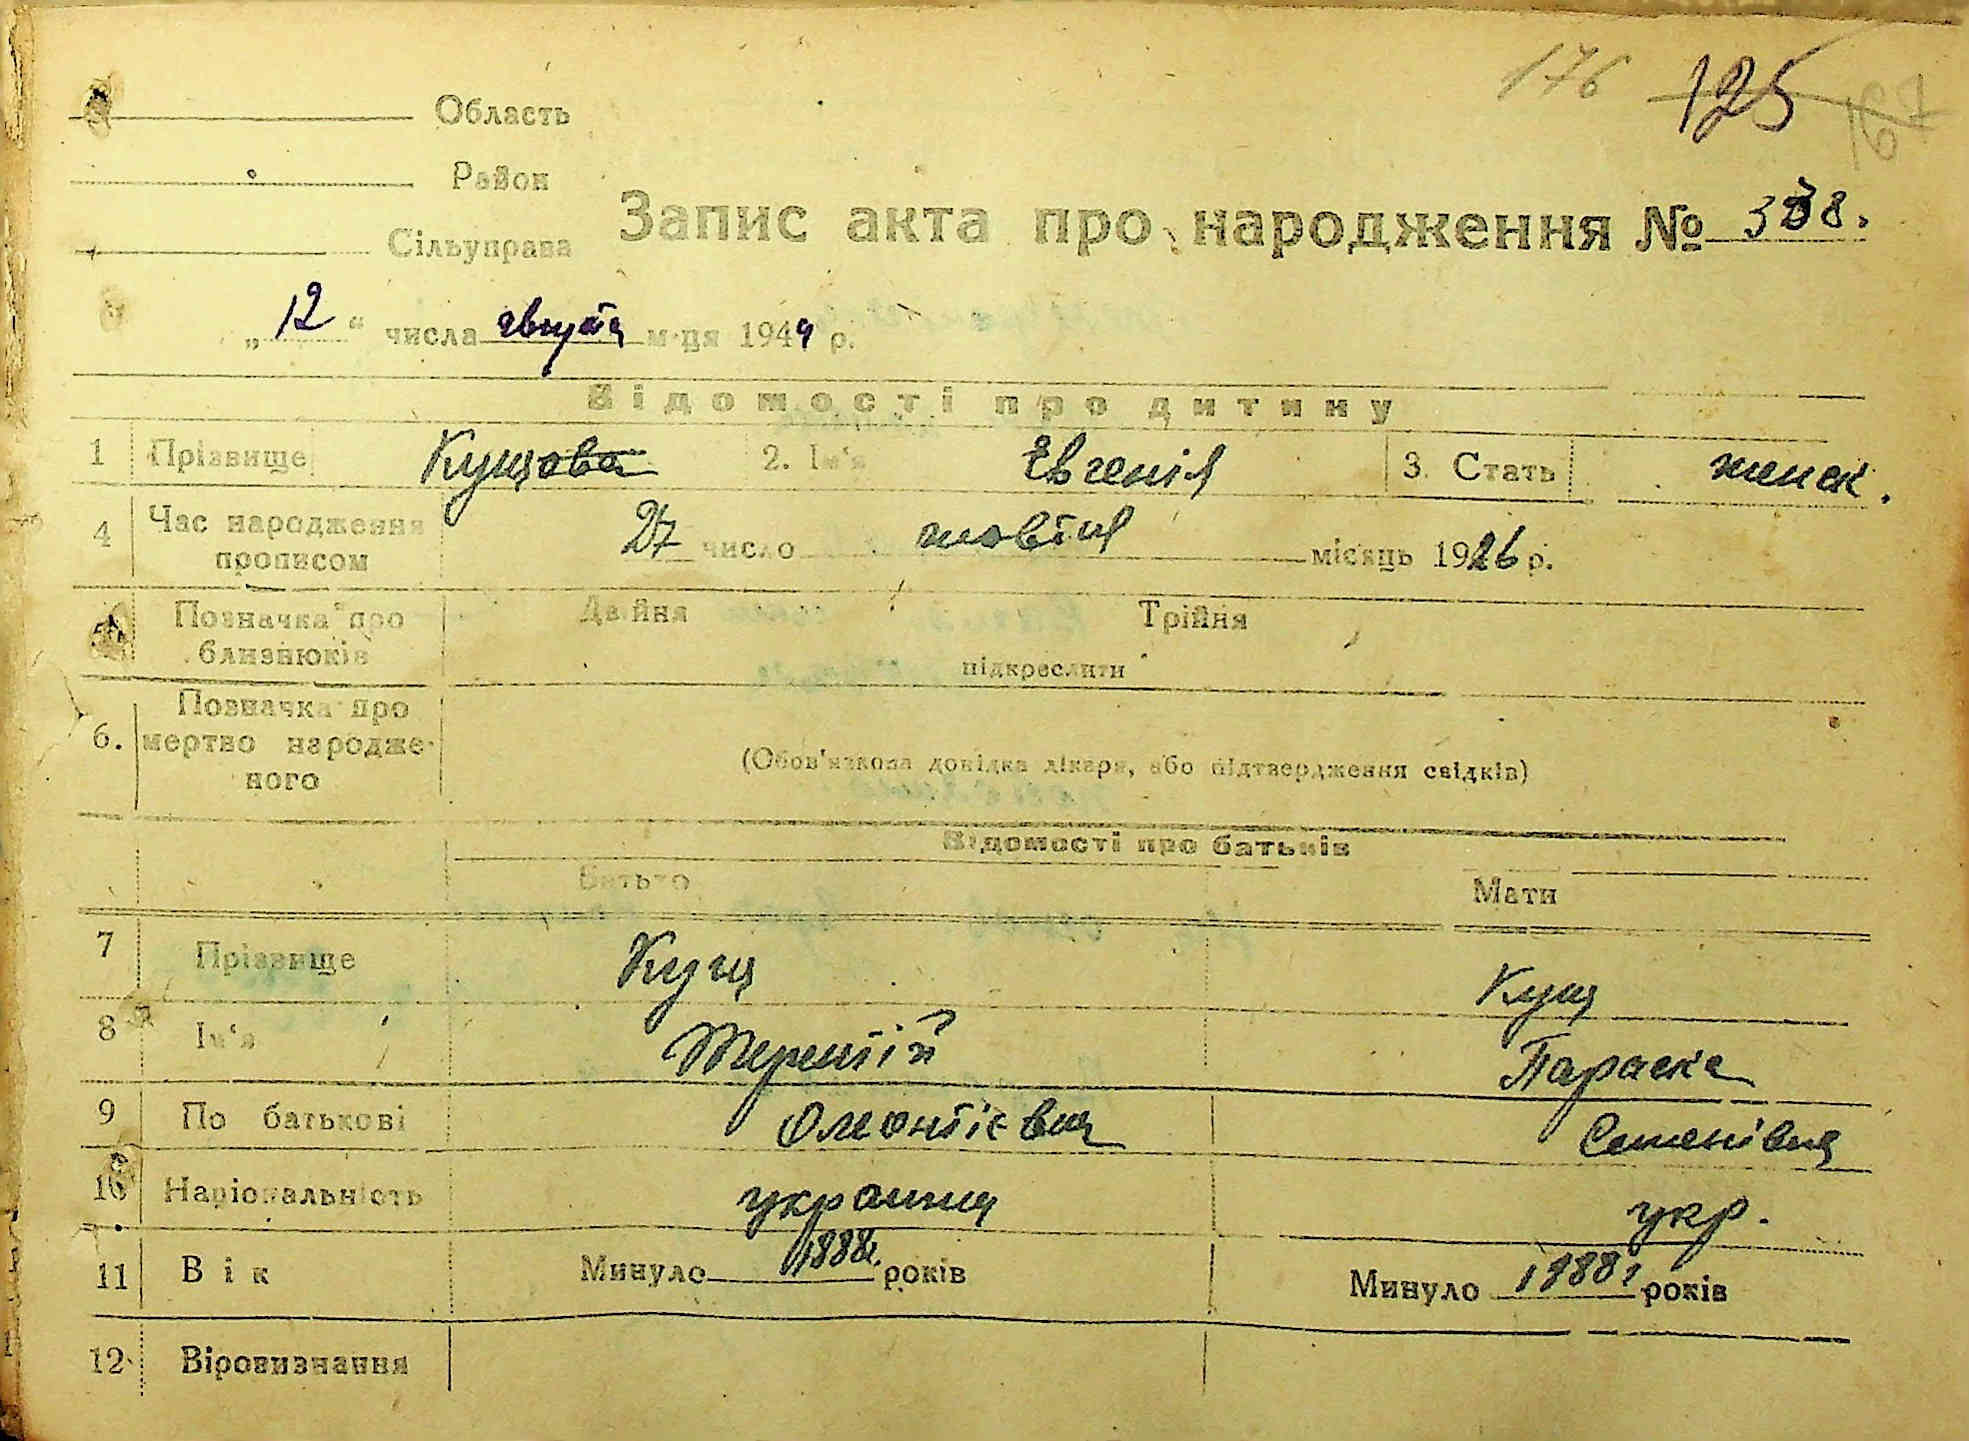 176 125 167
Область
Район
Запис акта про народження № 338.
Сільуправа
„12“ числа августа м-ця 1944 р.
Відомості про дитину
1 Прізвище Кущова 2. Ім'я Евгенія 3. Стать женск.
4 Час народження прописом 27 число жовтня місяць 1926 р.
5 Позначка про близнюків Двійня Трійня
підкреслити
6. Позначка про мертво народженого
(Обов'язкова довідка лікаря, або підтвердження свідків)
Відомості про батьків
Батько Мати
7 Прізвище Кущ Кущ
8 Ім'я Терентій Параска
9 По батькові Семенівна
10 Національність українец укр.
11 Вік Минуло 1888г. років Минуло 1888г років
12 Віровизнання